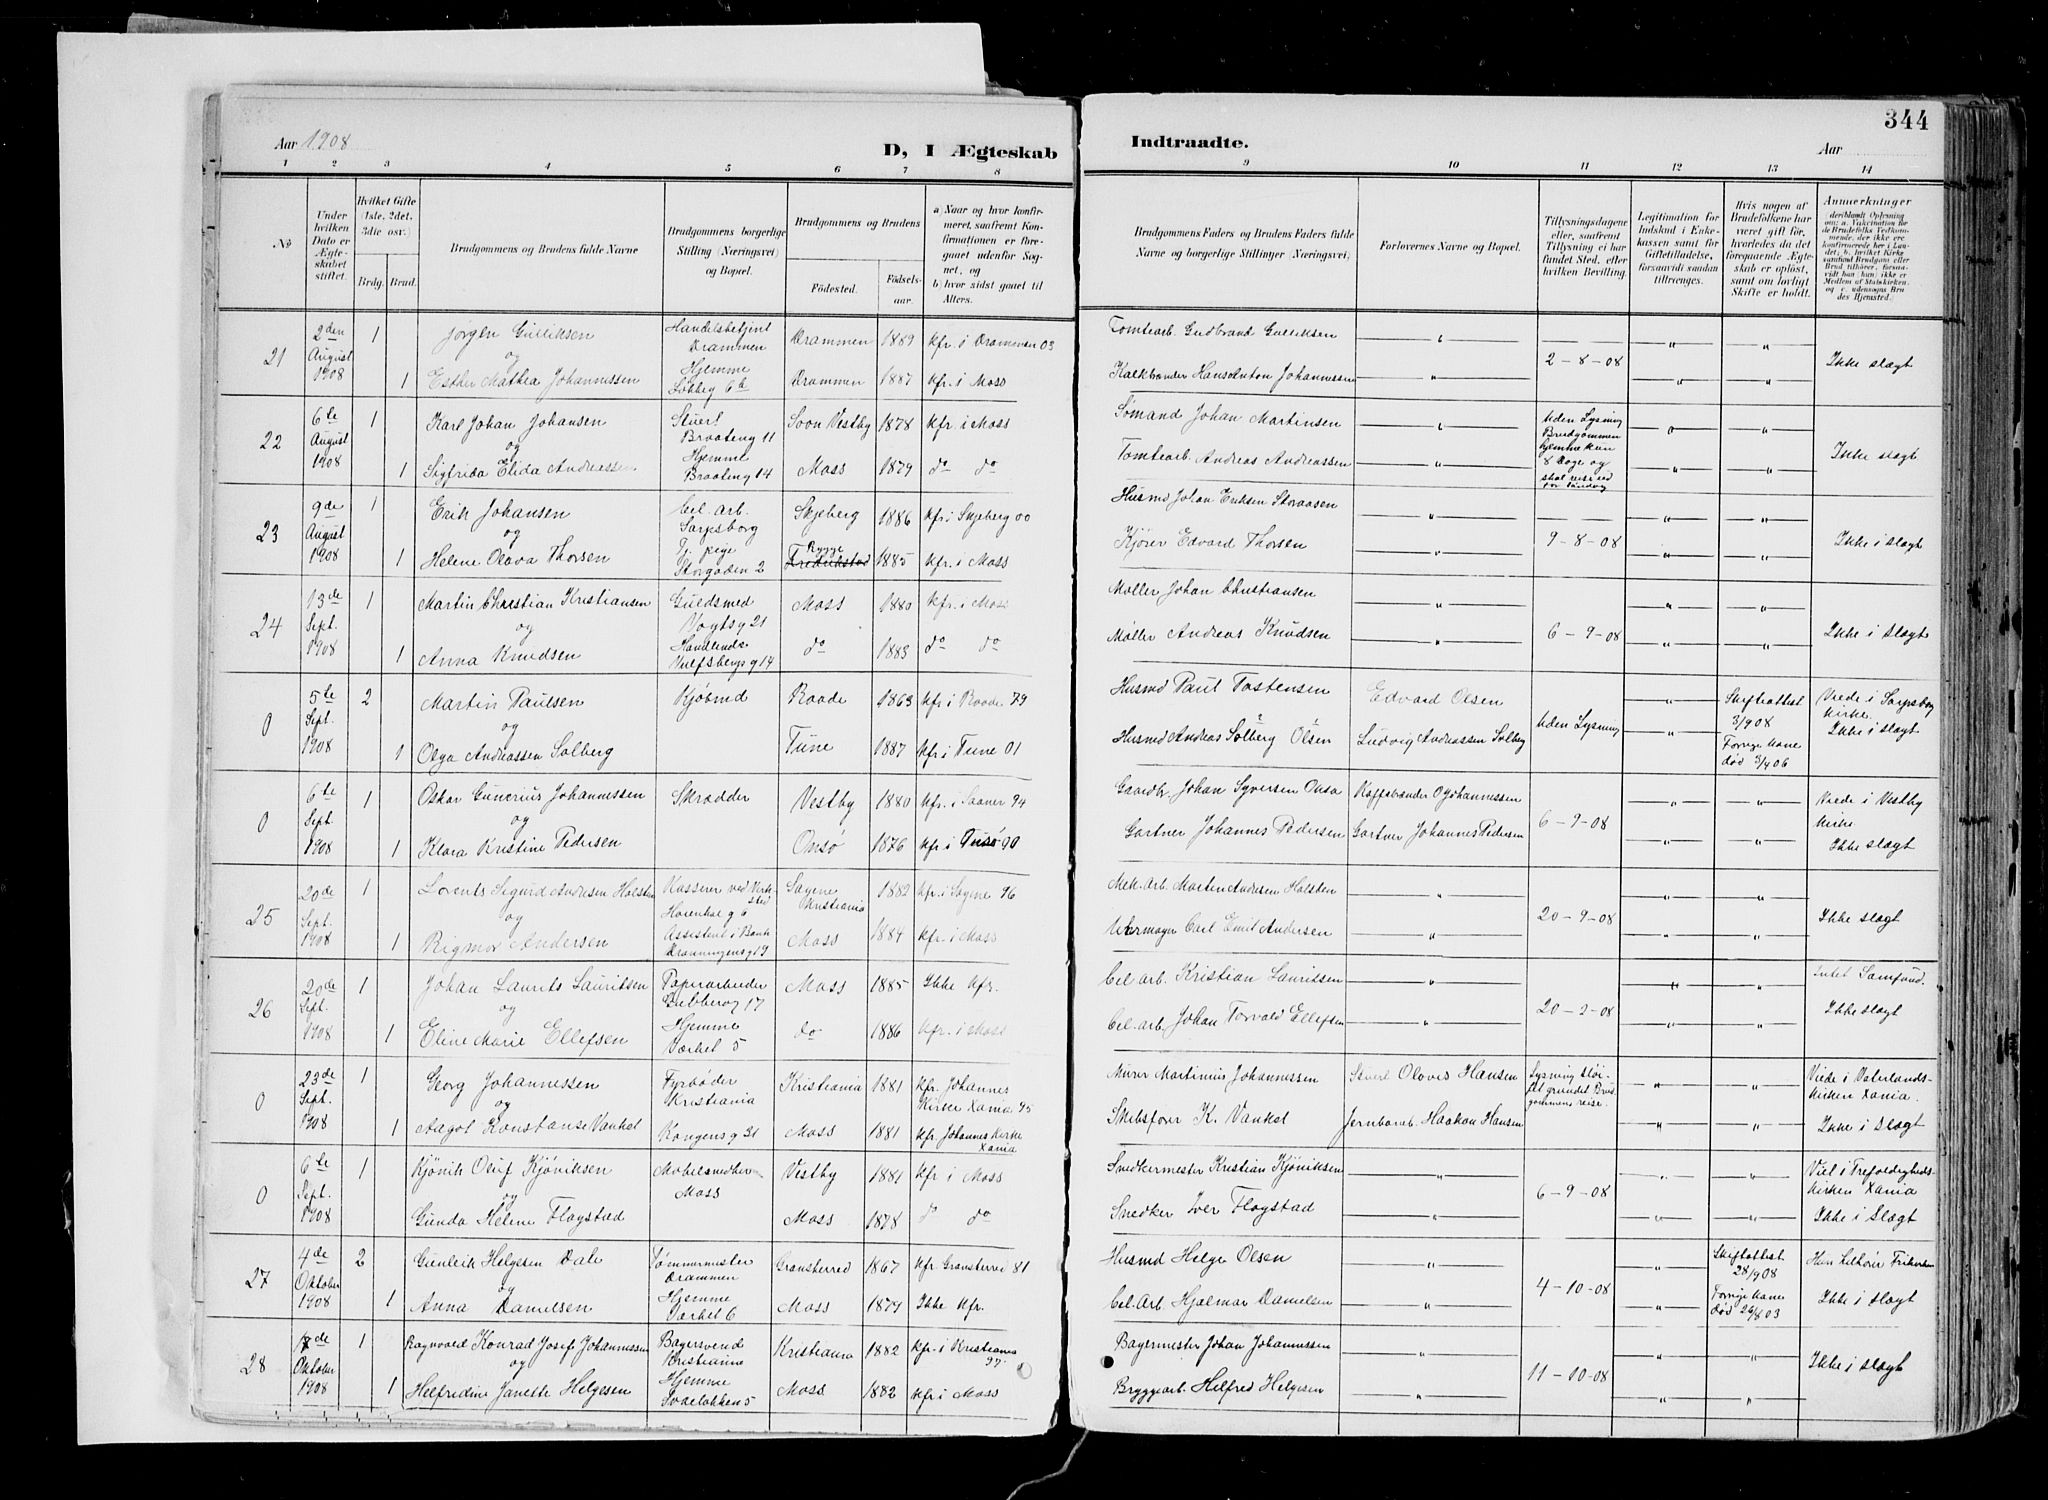 344
Aar 1908
D, I Ægteskab
Indtraadte.
Aar
1 2 3 4 5 6 7 8 9 10 11 12 13 14
№
Under hvilken Dato er Ægteskabet stiftet.
Hvilket Gifte (1ste, 2det, 3die osv.)
Brdg. Brud.
Brudgommens og Brudens fulde Navne
Brudgommens borgerlige Stilling (Næringsvei) og Bopæl.
Brudgommens og Brudens
Fødested. Fødselsaar.
a) Naar og hvor konfirmeret, saafremt Konfirmationen er foregaaet udenfor Sognet, og
b) hvor sidst gaaet til Alters.
Brudgommens Faders og Brudens Faders fulde Navne og borgerlige Stillinger (Næringsvei)
Forlovernes Navne og Bopæl.
Tillysningsdagene eller, saafremt Tillysning ei har fundet Sted, efter hvilken Bevilling.
Legitimation for Indskud i Enkekassen samt for Giftetilladelse, forsaavidt saadan tiltrænges.
Hvis nogen af Brudefolkene har været gift før, hvorledes da det foregaaende Ægteskab er opløst, samt om lovligt Skifte er holdt.
Anmærkninger
21 2den August 1908 1 Jørgen Gulliksen Handelsbetjent Drammen Drammen 1889 Kfr. i Drammen 03 Tomtearb. Gudbrand Gulliksen
og 2-8-08 Ikke slægt
1 Esther Mathea Johannessen Hjemme Drammen 1887 Kfr. i Moss Kalkbrænder Hans Anton Johannessen
22 6te August 1908 1 Karl Johan Johansen Stuert Braateng 11 Soon Vestby 1878 Kfr. i Moss Sømand Johan Martinsen Uden Lysning Brudgommen hjemme kun 8 Dage og skal reise
og Ikke slægt
1 Sigfrida Elida Andreassen Hjemme Braateng 14 Moss 1879 do do Tomtearb. Andreas Andreassen
23 9de August 1908 1 Erik Johansen Cel. Arb. Sarpsborg Skjeberg 1886 Kfr. i Skjeberg 00 Husmd Johan Eriksen Storaasen
og 9-8-08 Ikke i slægt
1 Helene Olava Thorsen Tj. pige Storgaden 2 Rygge Fredrikstad 1885 Kfr. i Moss Kjører Edvard Thorsen
24 13de Sept. 1908 1 Martin Christian Kristiansen Guldsmed Vogtsg 21 Moss 1880 Kfr. i Moss Møller Johan Christiansen
og 6-9-08 Ikke i slægt
1 Anna Knudsen Handlende Vulfsbergs g 14 do 1883 do do Møller Andreas Knudsen
0 5te Sept. 1908 2 Martin Paulsen Kjøbmd Raade 1863 Kfr. i Raade 79 Husmd Paul Tostensen Edvard Olsen Uden Lysning Skifteattest 3/9 08 Viede i Sarpsborg Kirke.
og Ikke i slægt
1 Olga Andreassen Solberg Tune 1887 Kfr. i Tune 01 Husmd Andreas Solberg Olsen Ludvig Andreassen Solberg Forrige Kone død 3/4 06
0 6te Sept. 1908 1 Oskar Gunerius Johannessen Skrædder Vestby 1880 Kfr. i Saaner 94 Gaardbr. Johan Syversen Onsø Kaffebrænder O Johannessen Viede i Vestby Kirke
og 6-9-08
1 Klara Kristine Pedersen Onsø 1876 Kfr. i Onsø 90 Gartner Johannes Pedersen Gartner Johannes Pedersen Ikke slægt
25 20de Sept. 1908 1 Lorents Sigurd Andersen Holsten Kasserer ved Verksted Sagene Kristiania 1882 Kfr. i Sagene 96 Mek. Arb. Martin Andersen Holsten
og 20-9-08 Ikke slægt
1 Rigmor Andersen Assistent i Bank Dronningensg 19 Moss 1884 Kfr. i Moss Urmager Carl Emil Andersen
26 20de Sept. 1908 1 Johan Laurits Lauritsen Papirarbeider 17 Moss 1885 Ikke Kfr. Cel. Arb. Kristian Lauritsen Intet Samfund.
og 20-9-08 Ikke slægt
1 Eline Marie Ellefsen Hjemme Værket 5 do 1886 Kfr. i Moss Cel. Arb. Johan Torvald Ellefsen
0 23de Sept. 1908 1 Georg Johannessen Fyrbøder Kristiania Kristiania 1881 Kfr. Johannes Kirke Xania 95 Murer Martinius Johannessen Stuert Oloves Hansen Lysning sløifet grundet Brudgommens reise. Viede i Vaterlandskirken Xania.
og
1 Aagot Konstanse Vankel Kongens g 31 Moss 1881 Kfr. Johannes Kirke Xania Skibsfører K. Vankel Jernbaneb. Haakon Hansen Ikke i Slægt
0 6te Sept. 1908 1 Kjønik Oluf Kjøniksen Møbelsnedker Moss Vestby 1881 Kfr i Moss Snedkermester Kristian Kjøniksen Viet i Trefoldighedskirken Xania
og 6-9-08
1 Gunda Helene Flogstad Moss 1878 do do Snedker Iver Flogstad Ikke i Slægt
27 4de Oktober 1908 2 Gunleik Helgesen Dale Tømmermester Drammen Gransherred 1867 Kfr Gransherred 81 Husmd Helge Olsen Skifteattest 28/9 08 Hun tilhører Frikirken
og 4-10-08
1 Anna Danielsen Hjemme Værket 6 Moss 1879 Ikke Kfr. Cel. Arb. Hjalmar Danielsen Forrige Kone død 26/8 03 Ikke i slægt
28 Oktober 1908 1 Ragnvald Konrad Josef Johannessen Bagersvend Kristiania Kristiania 1882 Kfr. i Kristiania 97. Bagermester Johan Johannessen
og 11-10-08 Ikke i slægt
1 Helfredine Janette Helgesen Hjemme Moss 1882 Kfr i Moss Bryggearb. Helfred Helgesen